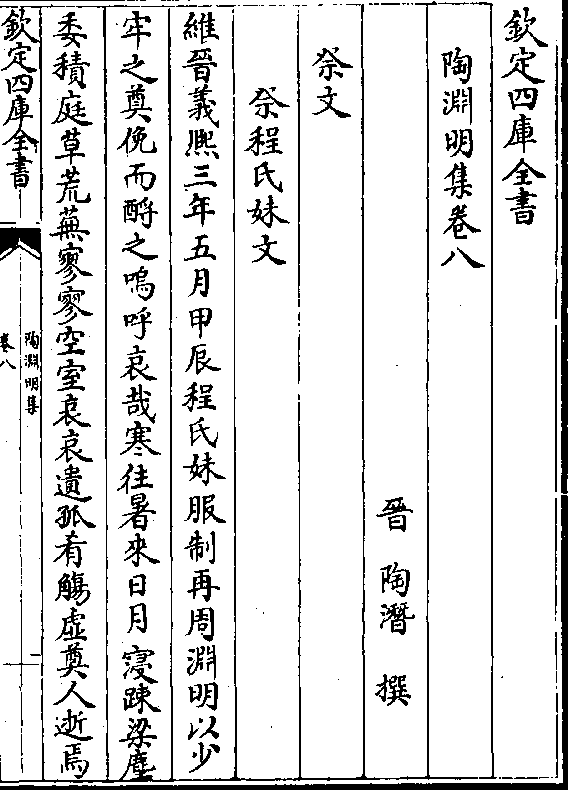 欽定四庫全書
陶淵明集卷八
晉 陶潛 撰
祭文
祭程氏妹文
維晉義熙三年五月甲辰程氏妹服制再周淵明以少
牢之奠俛而酹之嗚呼哀哉寒往暑來日月寖踈梁塵
委積庭草荒蕪寥寥空室哀哀遺孤肴觴虛奠人逝焉
欽定四庫全書
陶淵明集
卷八
一